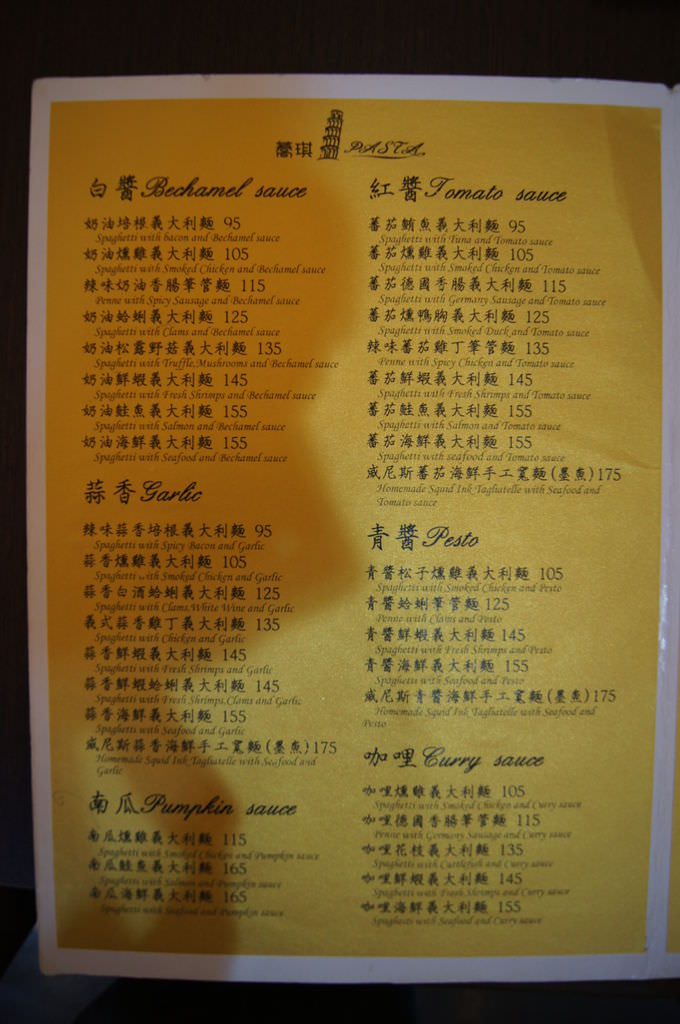 蕎琪 PASTA
白醬 Bechamel sauce
奶油培根義大利麵 95
Spaghetti with bacon and Bechamel sauce
奶油燻雞義大利麵 105
Spaghetti with Smoked Chicken and Bechamel sauce
辣味奶油香腸筆管麵 115
Penne with Spicy Sausage and Bechamel sauce
奶油蛤蜊義大利麵 125
Spaghetti with Clams and Bechamel sauce
奶油松露野菇義大利麵 135
Spaghetti with Truffle.Mushrooms and Bechamel sauce
奶油鮮蝦義大利麵 145
Spaghetti with Fresh Shrimps and Bechamel sauce
奶油鮭魚義大利麵 155
Spaghetti with Salmon and Bechamel sauce
奶油海鮮義大利麵 155
Spaghetti with Seafood and Bechamel sauce
蒜香 Garlic
辣味蒜香培根義大利麵 95
Spaghetti with Spicy Bacon and Garlic
蒜香燻雞義大利麵 105
Spaghetti with Smoked Chicken and Garlic
蒜香白酒蛤蜊義大利麵 125
Spaghetti with Clams.White Wine and Garlic
義式蒜香雞丁義大利麵 135
Spaghetti with Chicken and Garlic
蒜香鮮蝦義大利麵 145
Spaghetti with Fresh Shrimps and Garlic
蒜香鮮蝦蛤蜊義大利麵 145
Spaghetti with Fresh Shrimps.Clams and Garlic
蒜香海鮮義大利麵 155
Spaghetti with Seafood and Garlic
威尼斯蒜香海鮮手工寬麵(墨魚)175
Homemade Squid Ink Tagliatelle with Seafood and
Garlic
南瓜 Pumpkin sauce
南瓜燻雞義大利麵 115
Spaghetti with Smoked Chicken and Pumpkin sauce
南瓜鮭魚義大利麵 165
Spaghetti with Salmon and Pumpkin sauce
南瓜海鮮義大利麵 165
Spaghetti with Seafood and Pumpkin sauce
紅醬 Tomato sauce
蕃茄鮪魚義大利麵 95
Spaghetti with Tuna and Tomato sauce
蕃茄燻雞義大利麵 105
Spaghetti with Smoked Chicken and Tomato sauce
蕃茄德國香腸義大利麵 115
Spaghetti with Germany Sausage and Tomato sauce
蕃茄燻鴨胸義大利麵 125
Spaghetti with Smoked Duck and Tomato sauce
辣味蕃茄雞丁筆管麵 135
Penne with Spicy Chicken and Tomato sauce
蕃茄鮮蝦義大利麵 145
Spaghetti with Fresh Shrimps and Tomato sauce
蕃茄鮭魚義大利麵 155
Spaghetti with Salmon and Tomato sauce
蕃茄海鮮義大利麵 155
Spaghetti with seafood and Tomato sauce
威尼斯蕃茄海鮮手工寬麵(墨魚)175
Homemade Squid Ink Tagliatelle with Seafood and
Tomato sauce
青醬 Pesto
青醬松子燻雞義大利麵 105
Spaghetti with Smoked Chicken and Pesto
青醬蛤蜊筆管麵 125
Penne with Clams and Pesto
青醬鮮蝦義大利麵 145
Spaghetti with Fresh Shrimps and Pesto
青醬海鮮義大利麵 155
Spaghetti with Seafood and Pesto
威尼斯青醬海鮮手工寬麵(墨魚)175
Homemade Squid Ink Tagliatelle with Seafood and
Pesto
咖哩 Curry sauce
咖哩燻雞義大利麵 105
Spaghetti with Smoked Chicken and Curry sauce
咖哩德國香腸筆管麵 115
Penne with Germany Sausage and Curry sauce
咖哩花枝義大利麵 135
Spaghetti with Cuttlefish and Curry sauce
咖哩鮮蝦義大利麵 145
Spaghetti with Fresh Shrimps and Curry sauce
咖哩海鮮義大利麵 155
Spaghetti with Seafood and Curry sauce